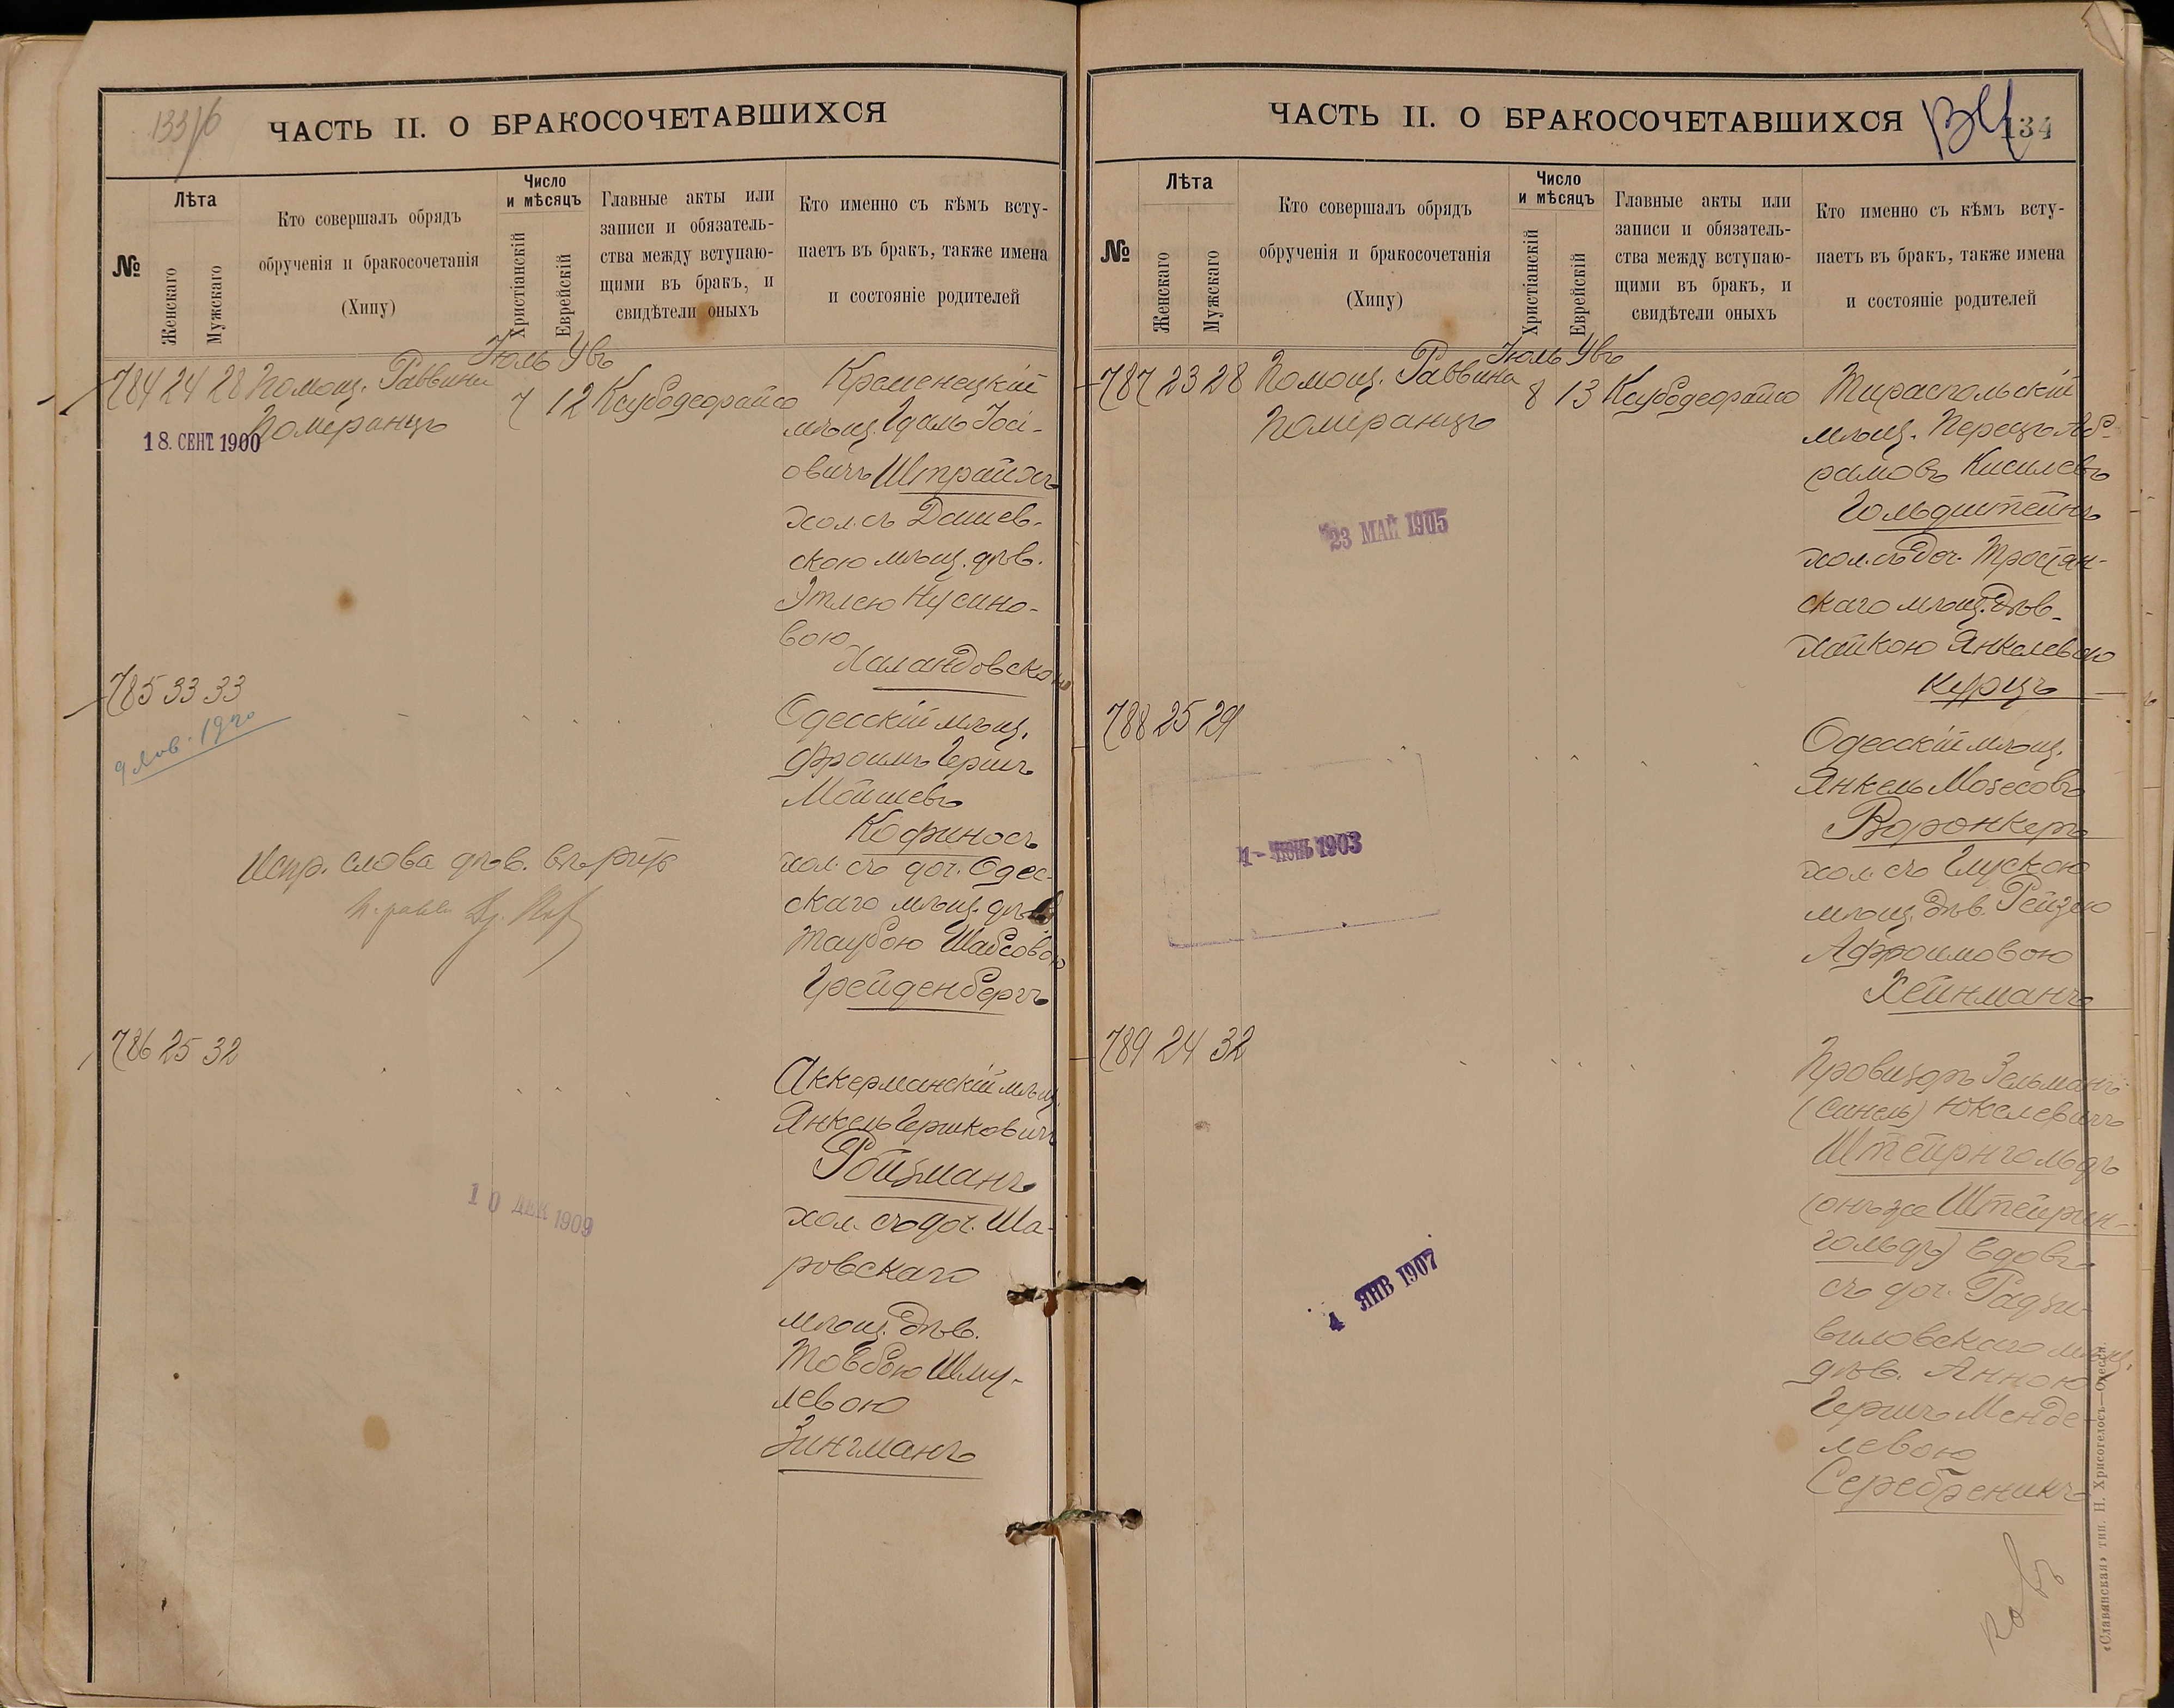 133/б
ЧАСТЬ II. О БРАКОСОЧЕТАВШИХСЯ
№
Лѣта
Женскаго
Мужскаго
Кто совершалъ обрядъ
обрученія и бракосочетанія
(Хипу)
Число
и мѣсяцъ
Христіанскій
Еврейскій
Главные акты или
записи и обязатель-
ства между вступаю-
щими въ бракъ, и
свидѣтели оныхъ
Кто именно съ кѣмъ всту-
паетъ въ бракъ, также имена
и состояніе родителей
Іюль Увъ
784 24 28 Помощ. Раввина
Померанцъ
7 12 Ксубодеорайсо
18. СЕНТ 1900
Кременецкій
мѣщ. Идаль Іосі-
овичъ Штрайхъ
хол. съ Дашев-
скою мѣщ. дѣв.
Этлею Нусино-
вою
Халандовскою
785 33 33
9 Нов. 1920
Одесскій мѣщ.
Фроимъ Гершъ
Мойшевъ
Кофиносъ
хол. съ доч. Одес-
скаго мѣщ. дѣв.
Таубою Шабсовою
Грейденбергъ
Испр. слова дѣв. вѣрить
786 25 32
Аккерманскій мѣщ.
Янкель Гершковичъ
Ройзманъ
хол. съ доч. Ша-
ровскаго
мѣщ. дѣв.
Товбою Шму-
левою
Зингманъ
10 ДЕК 1909
ЧАСТЬ II. О БРАКОСОЧЕТАВШИХСЯ
134
№
Лѣта
Женскаго
Мужскаго
Кто совершалъ обрядъ
обрученія и бракосочетанія
(Хипу)
Число
и мѣсяцъ
Христіанскій
Еврейскій
Главные акты или
записи и обязатель-
ства между вступаю-
щими въ бракъ, и
свидѣтели оныхъ
Кто именно съ кѣмъ всту-
паетъ въ бракъ, также имена
и состояніе родителей
Іюль Увъ
787 23 28 Помощ. Раввина
Померанцъ
8 13 Ксубодеорайсо
23 МАЙ 1905
Тираспольскій
мѣщ. Перецъ Аб-
рамовъ Кисилевъ
Гольдштейнъ
хол. съ доч. Тростян-
скаго мѣщ. дѣв.
Хайкою Янкелевою
Курцъ
788 25 29
Одесскій мѣщ.
Янкель Мовесовъ
Воронкеръ
хол. съ Глускою
мѣщ. дѣв. Рейзею
Афроимовою
Хейнманъ
1 - ИЮНЬ 1903
789 24 32
Провизоръ Зельманъ
(Синель) Юкелевичъ
Штейрнгольдъ
(онъ же Штейрин-
гольдъ) вдовъ.
съ доч. Радзи-
виловскаго мѣщ.
дѣв. Анною
Гершъ Менде-
левою
Серебреникъ
4 ЯНВ 1907
«Славянская» тип. Н. Хрисогелосъ—Одесса.